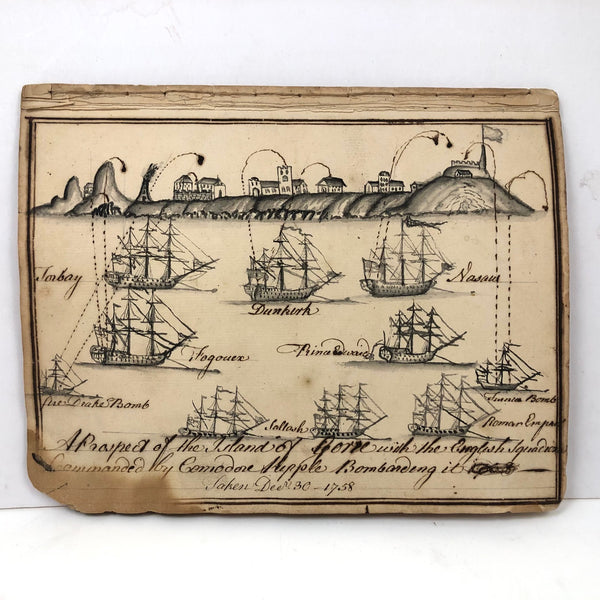 Torbay
Dunkirk
Nasaw
Fogouex
Prince Edward
Fire Drake Bomb
Furnice Bomb
Saltash
Roman Emper
A Prospect of the Island of Goree with the English Squadron
Commanded by Comodore Kepple Bombardeng it
Taken Decr 30 - 1758